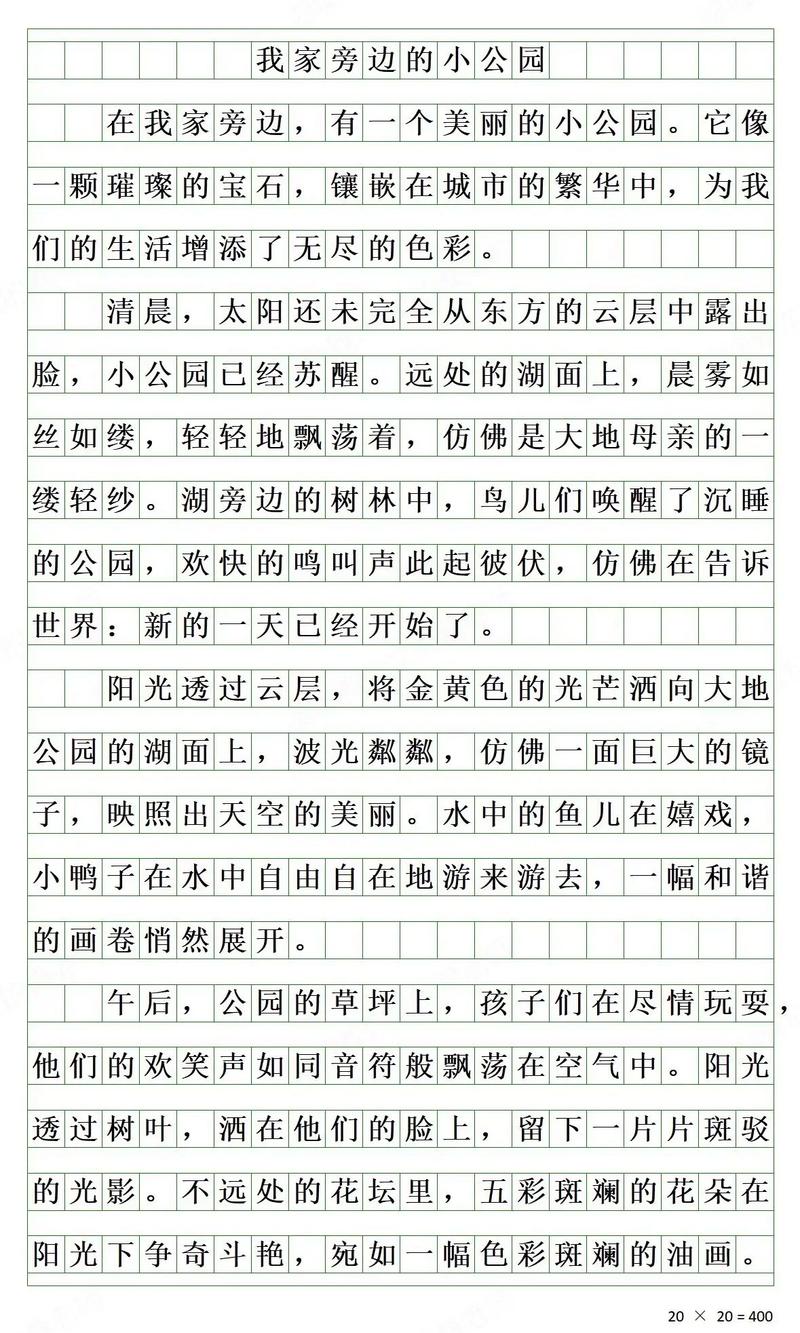 我家旁边的小公园
在我家旁边，有一个美丽的小公园。它像
一颗璀璨的宝石，镶嵌在城市的繁华中，为我
们的生活增添了无尽的色彩。
清晨，太阳还未完全从东方的云层中露出
脸，小公园已经苏醒。远处的湖面上，晨雾如
丝如缕，轻轻地飘荡着，仿佛是大地母亲的一
缕轻纱。湖旁边的树林中，鸟儿们唤醒了沉睡
的公园，欢快的鸣叫声此起彼伏，仿佛在告诉
世界：新的一天已经开始了。
阳光透过云层，将金黄色的光芒洒向大地
公园的湖面上，波光粼粼，仿佛一面巨大的镜
子，映照出天空的美丽。水中的鱼儿在嬉戏，
小鸭子在水中自由自在地游来游去，一幅和谐
的画卷悄然展开。
午后，公园的草坪上，孩子们在尽情玩耍，
他们的欢笑声如同音符般飘荡在空气中。阳光
透过树叶，洒在他们的脸上，留下一片片斑驳
的光影。不远处的花坛里，五彩斑斓的花朵在
阳光下争奇斗艳，宛如一幅色彩斑斓的油画。
20 × 20 = 400